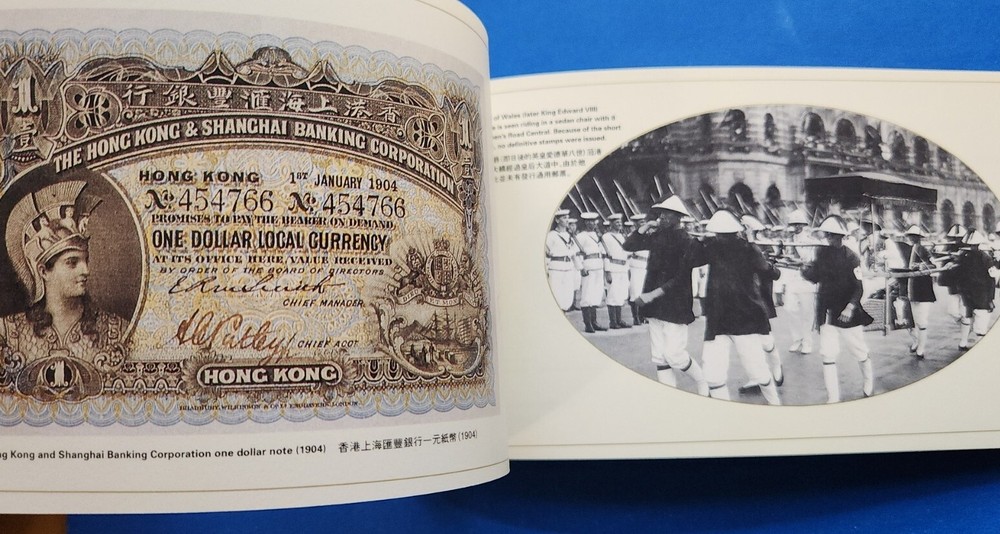 1
壹
行銀豐滙海上港香
THE HONG KONG & SHANGHAI BANKING CORPORATION
HONG KONG 1ST JANUARY 1904
No. 454766 No. 454766
PROMISES TO PAY THE BEARER ON DEMAND
ONE DOLLAR LOCAL CURRENCY
AT ITS OFFICE HERE, VALUE RECEIVED
BY ORDER OF THE BOARD OF DIRECTORS
CHIEF MANAGER
CHIEF ACCT
1
HONG KONG
BRADBURY, WILKINSON & Co. Ld. ENGRAVERS, LONDON
ng Kong and Shanghai Banking Corporation one dollar note (1904) 香港上海匯豐銀行一元紙幣 (1904)
of Wales (later King Edward VIII)
is seen riding in a sedan chair with
en's Road Central. Because of the short
, no definitive stamps were issued.
(即日後的英皇愛德華八世)
大轎經過皇后大道中,由於他
並未有發行通用郵票。